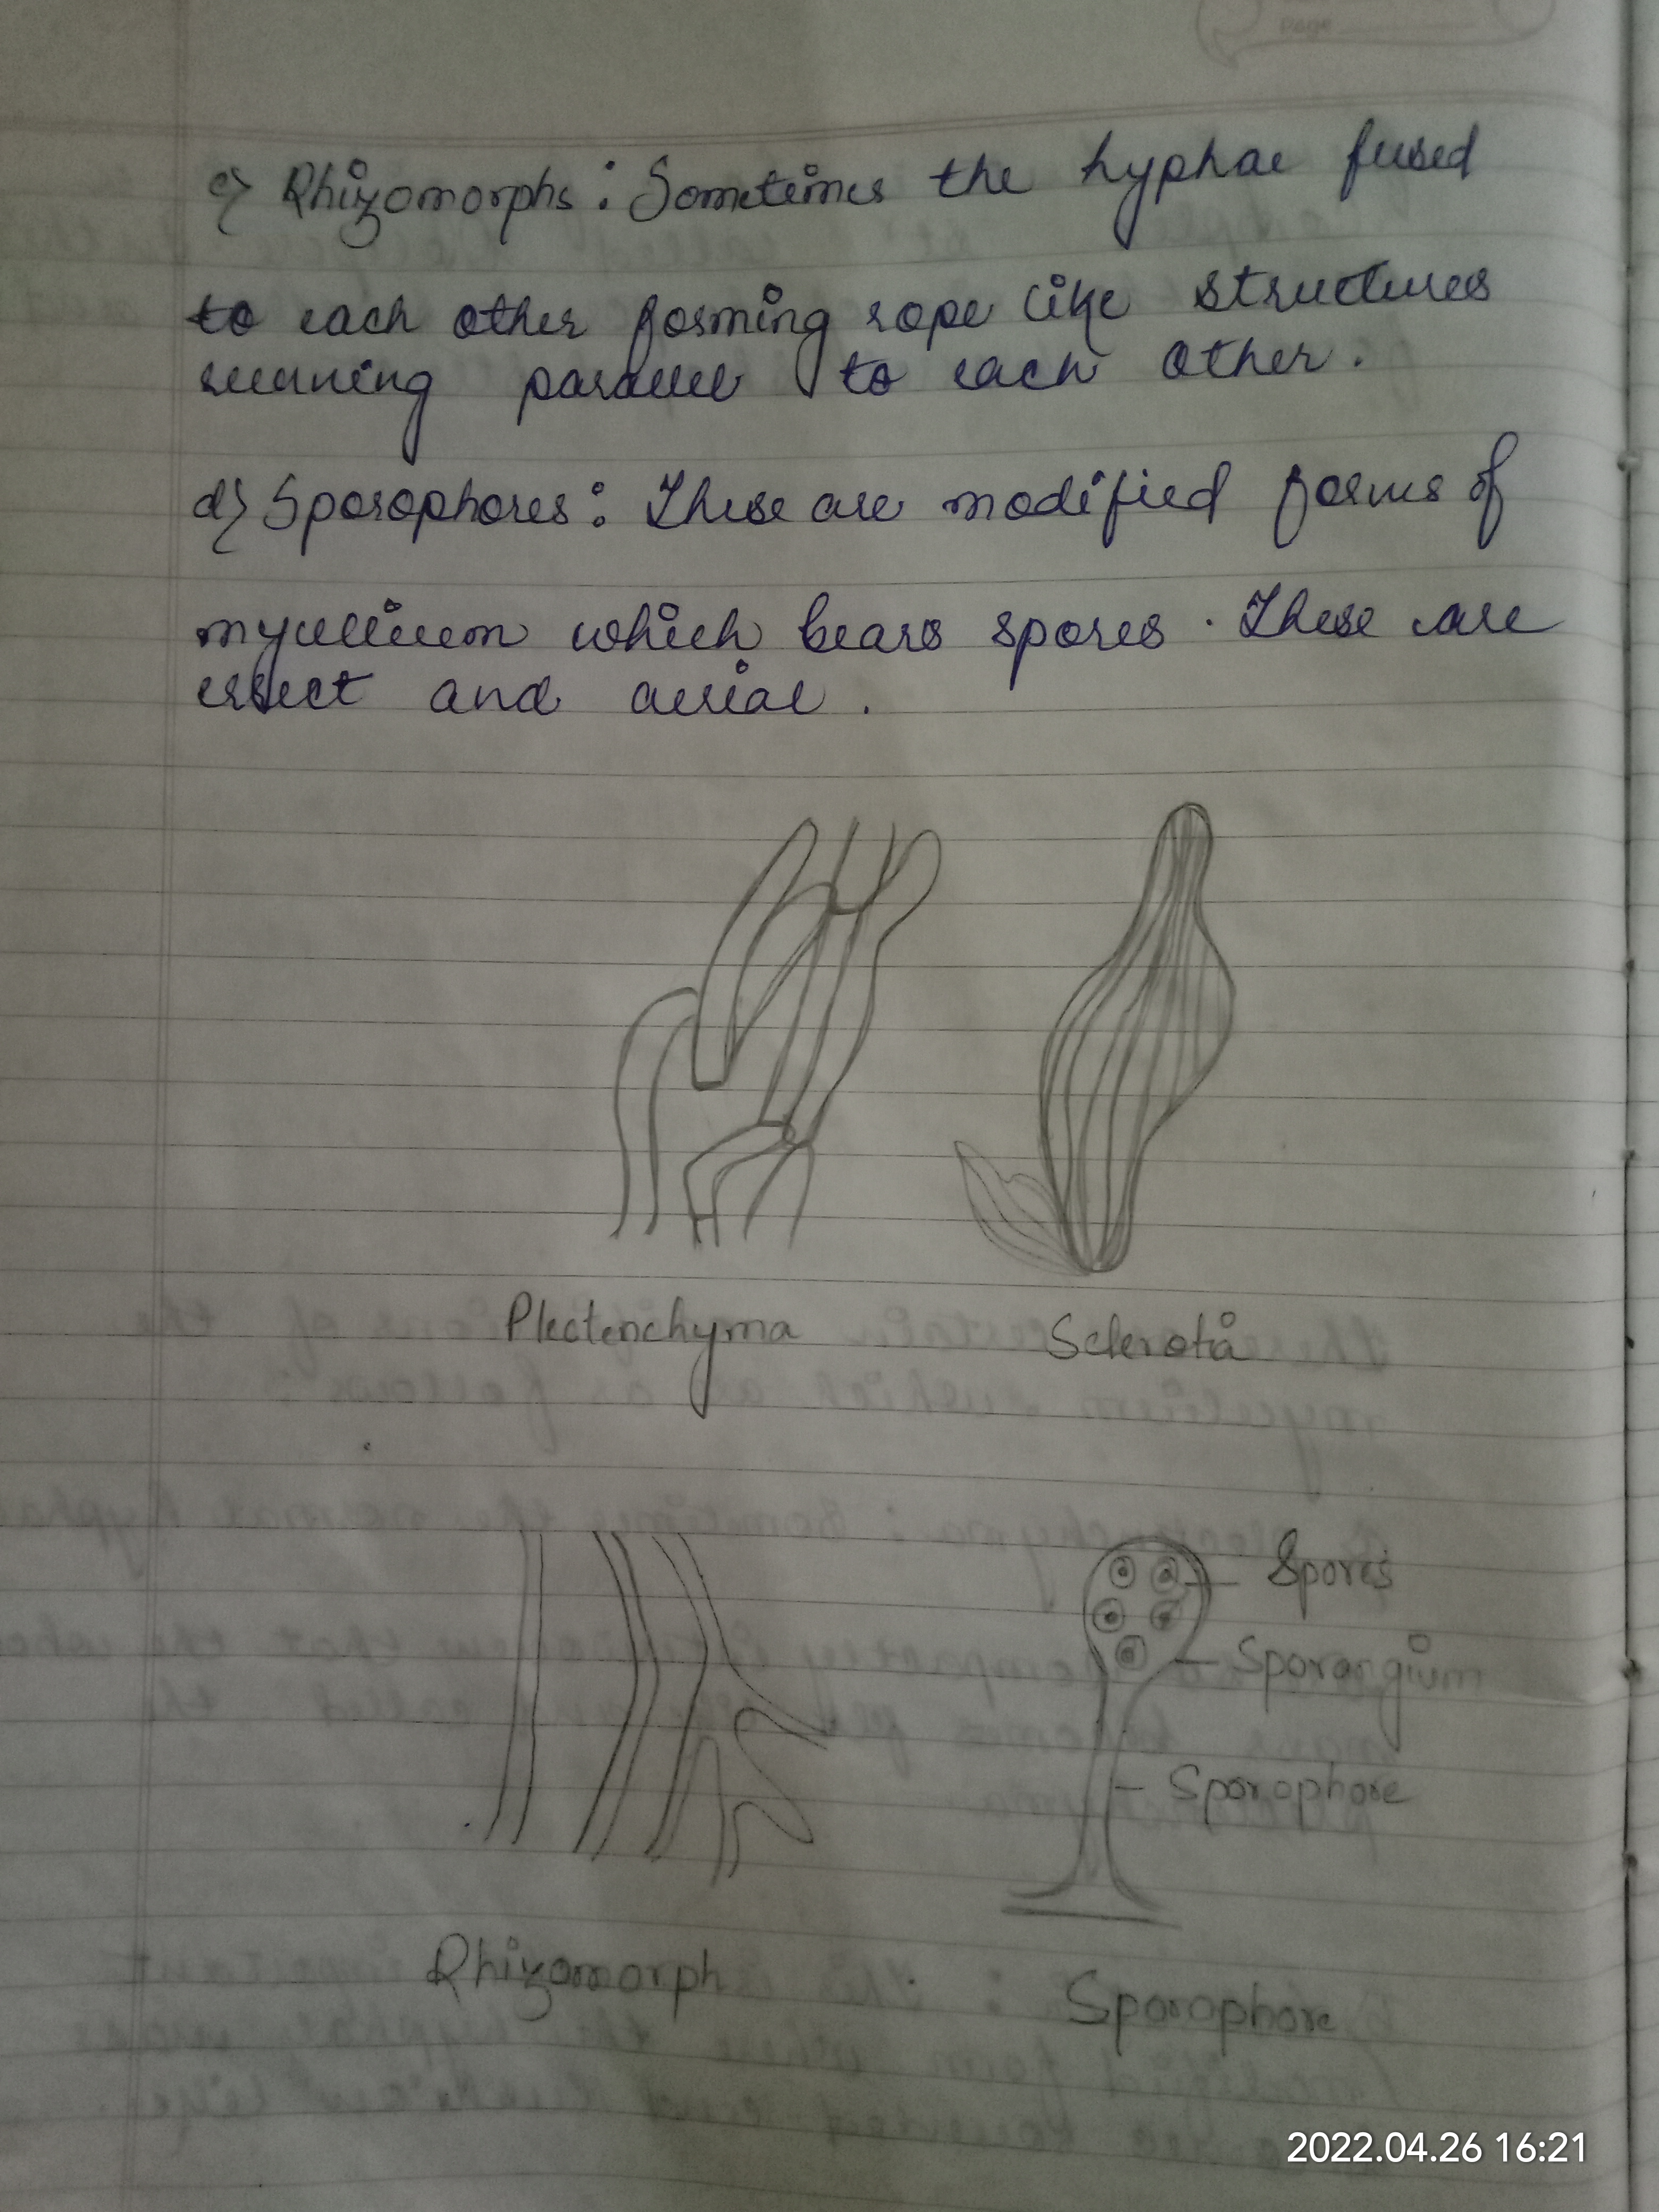 Page
c) Rhizomorphs : Sometimes the hyphae fused
to each other forming rope like structures
running parallel to each other .
d) Sporophores : These are modified forms of
mycellium which bears spores . These are
errect and aerial .
Plectenchyma
Sclerotia
Spores
Sporangium
Sporophore
Rhizomorph
Sporophore
2022.04.26 16:21